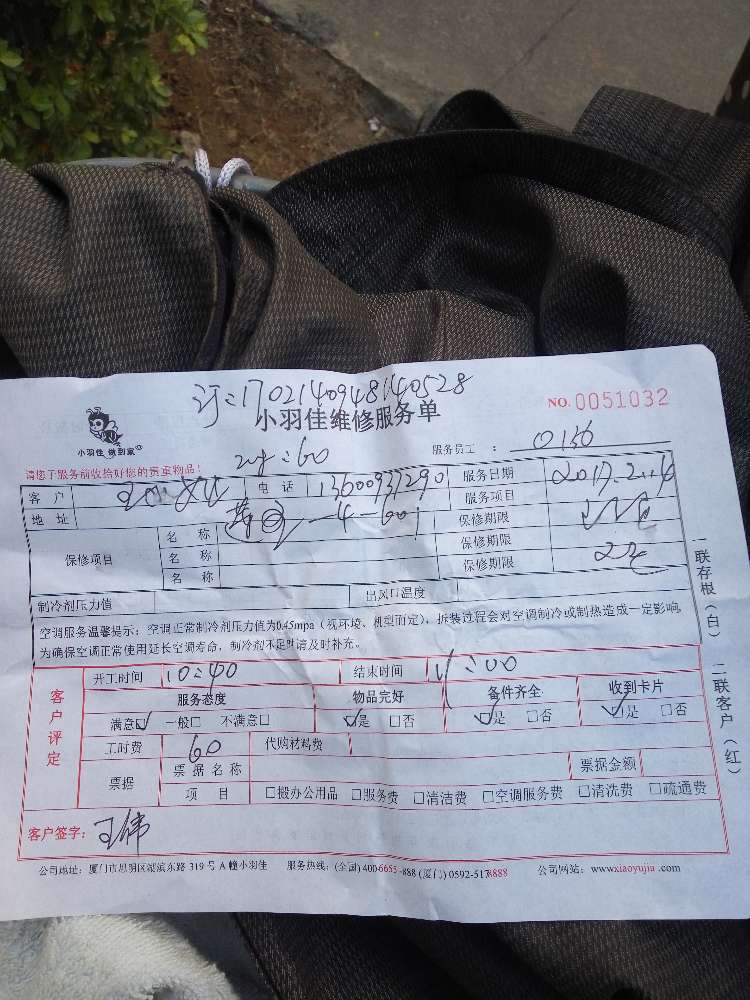 订:1702140948140528
NO.0051032
小羽佳维修服务单
小羽佳 做到家
服务员工 : 0156
请您于服务前收拾好您的贵重物品! :60
客户 电话 13600937290 服务日期 2017.2.16
地址 -4-601 服务项目
保修项目 名称 保修期限
名称 保修期限
名称 保修期限
制冷剂压力值 出风口温度
空调服务温馨提示:空调正常制冷剂压力值为0.45mpa(视环境、机型而定),拆装过程会对空调制冷或制热造成一定影响,
为确保空调正常使用延长空调寿命,制冷剂不足时请及时补充。
客户评定
开工时间 10:40 结束时间 11:00
服务态度 物品完好 备件齐全 收到卡片
满意☑ 一般□ 不满意□ ☑是 □否 ☑是 □否 ☑是 □否
工时费 60 代购材料费
票据 票据名称 票据金额
项目 □搬办公用品 □服务费 □清洁费 □空调服务费 □清洗费 □疏通费
客户签字: 王伟
公司地址:厦门市思明区湖滨东路319号A幢小羽佳 服务热线:(全国)4006655-888(厦门)0592-5178888 公司网站:www.xiaoyujia.com
一联存根(白) 二联客户(红)